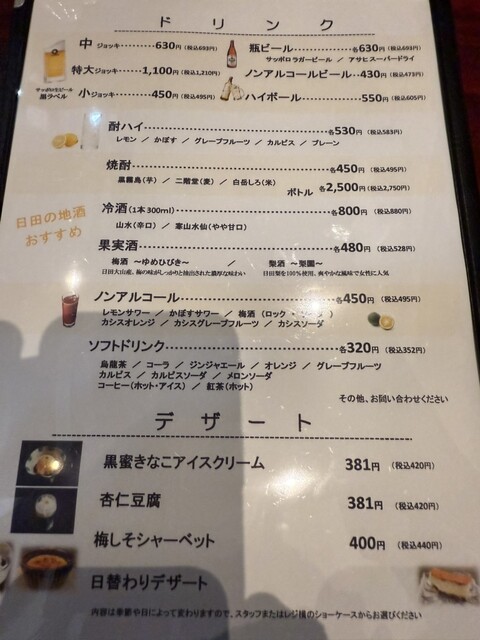 ドリンク
中 ジョッキ‥‥‥630円(税込693円)
瓶ビール‥‥‥各630円(税込693円)
サッポロラガービール ／ アサヒスーパードライ
特大ジョッキ‥‥1,100円(税込1,210円)
ノンアルコールビール‥430円(税込473円)
サッポロ生ビール
黒ラベル
小ジョッキ‥‥‥450円(税込495円)
ハイボール‥‥‥550円(税込605円)
酎ハイ‥‥‥各530円(税込583円)
レモン ／ かぼす ／ グレープフルーツ ／ カルピス ／ プレーン
焼酎‥‥‥各450円(税込495円)
黒霧島(芋) ／ 二階堂(麦) ／ 白岳しろ(米)
ボトル 各2,500円(税込2,750円)
日田の地酒
おすすめ
冷酒(1本300ml)‥‥‥各800円(税込880円)
山水(辛口) ／ 寒山水仙(やや甘口)
果実酒‥‥‥各480円(税込528円)
梅酒 ～ゆめひびき～ ／ 梨酒 ～梨園～
日田大山産。梅の味がしっかりと抽出された濃厚な味わい 日田梨を100%使用。爽やかな風味で女性に人気
ノンアルコール‥‥‥各450円(税込495円)
レモンサワー ／ かぼすサワー ／ 梅酒 (ロック
カシスオレンジ ／ カシスグレープフルーツ ／ カシスソーダ
ソフトドリンク‥‥‥各320円(税込352円)
烏龍茶 ／ コーラ ／ ジンジャエール ／ オレンジ ／ グレープフルーツ
カルピス ／ カルピスソーダ ／ メロンソーダ
コーヒー(ホット・アイス) ／ 紅茶(ホット)
その他、お問い合わせください
デザート
黒蜜きなこアイスクリーム 381円 (税込420円)
杏仁豆腐 381円 (税込420円)
梅しそシャーベット 400円 (税込440円)
日替わりデザート
内容は季節や日によって変わりますので、スタッフまたはレジ横のショーケースからお選びください